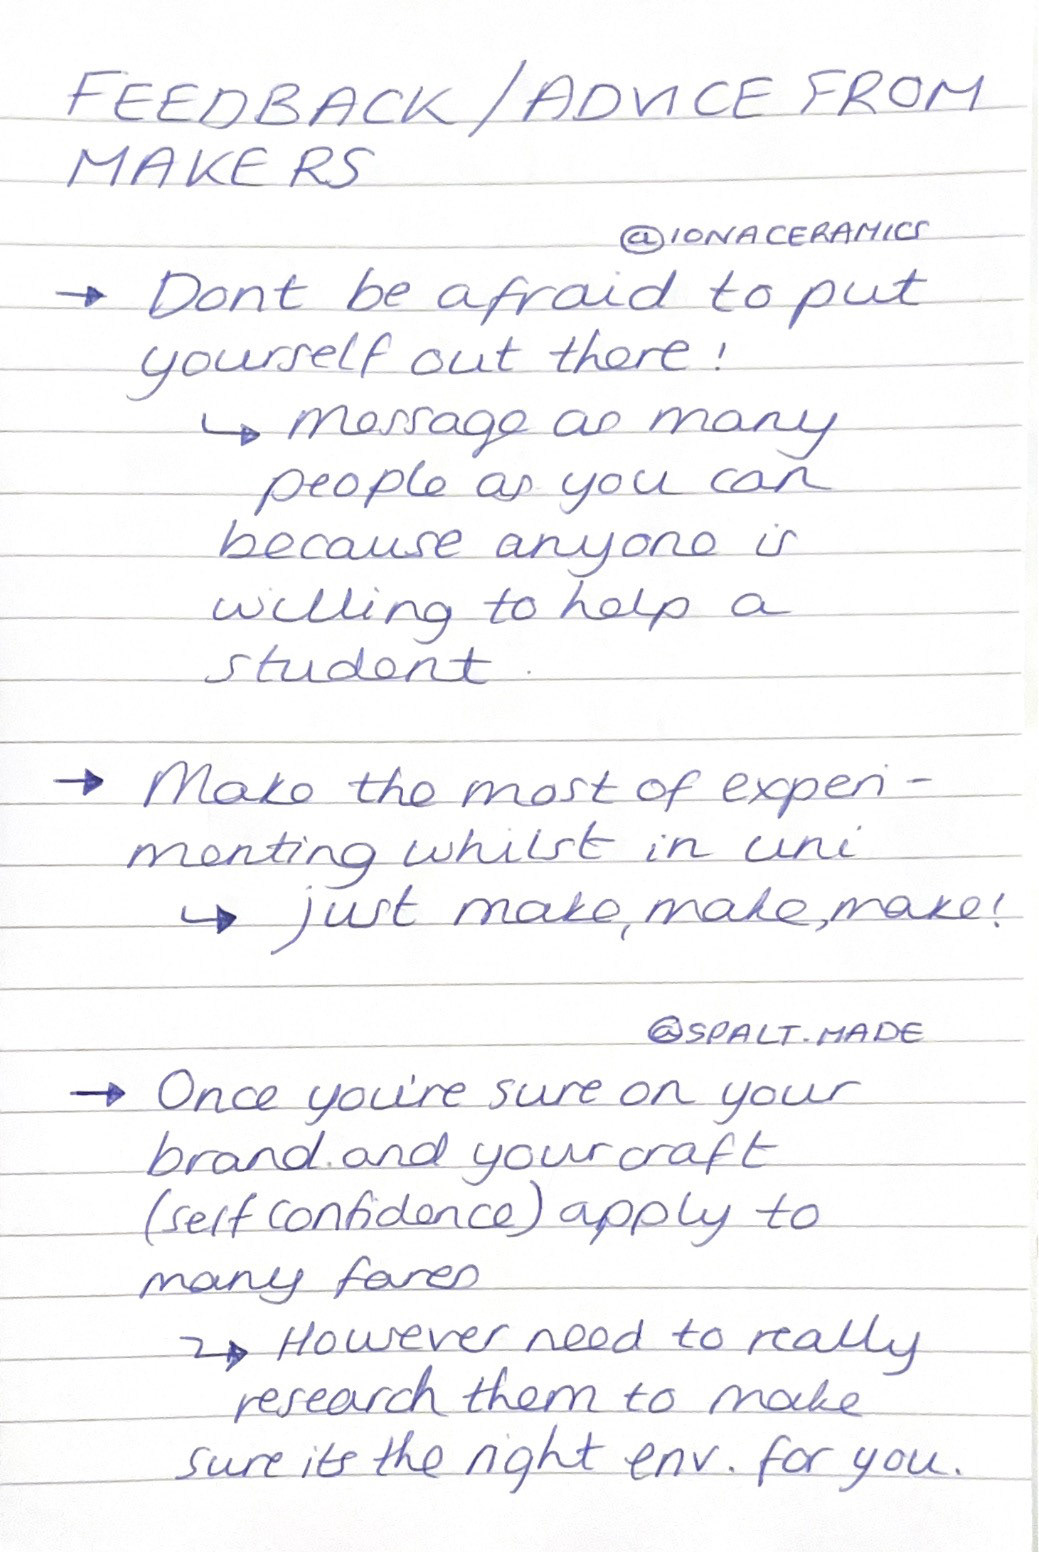 FEEDBACK/ADVICE FROM
MAKERS
@IONACERAMICS
→ Dont be afraid to put
yourself out there!
↳ Message as many
people as you can
because anyone is
willing to help a
student.
→ Make the most of experi-
menting whilst in uni
↳ just make, make, make!
@SPALT.MADE
→ Once you're sure on your
brand and your craft
(self confidence) apply to
many fares
↳ However need to really
research them to make
sure its the right env. for you.